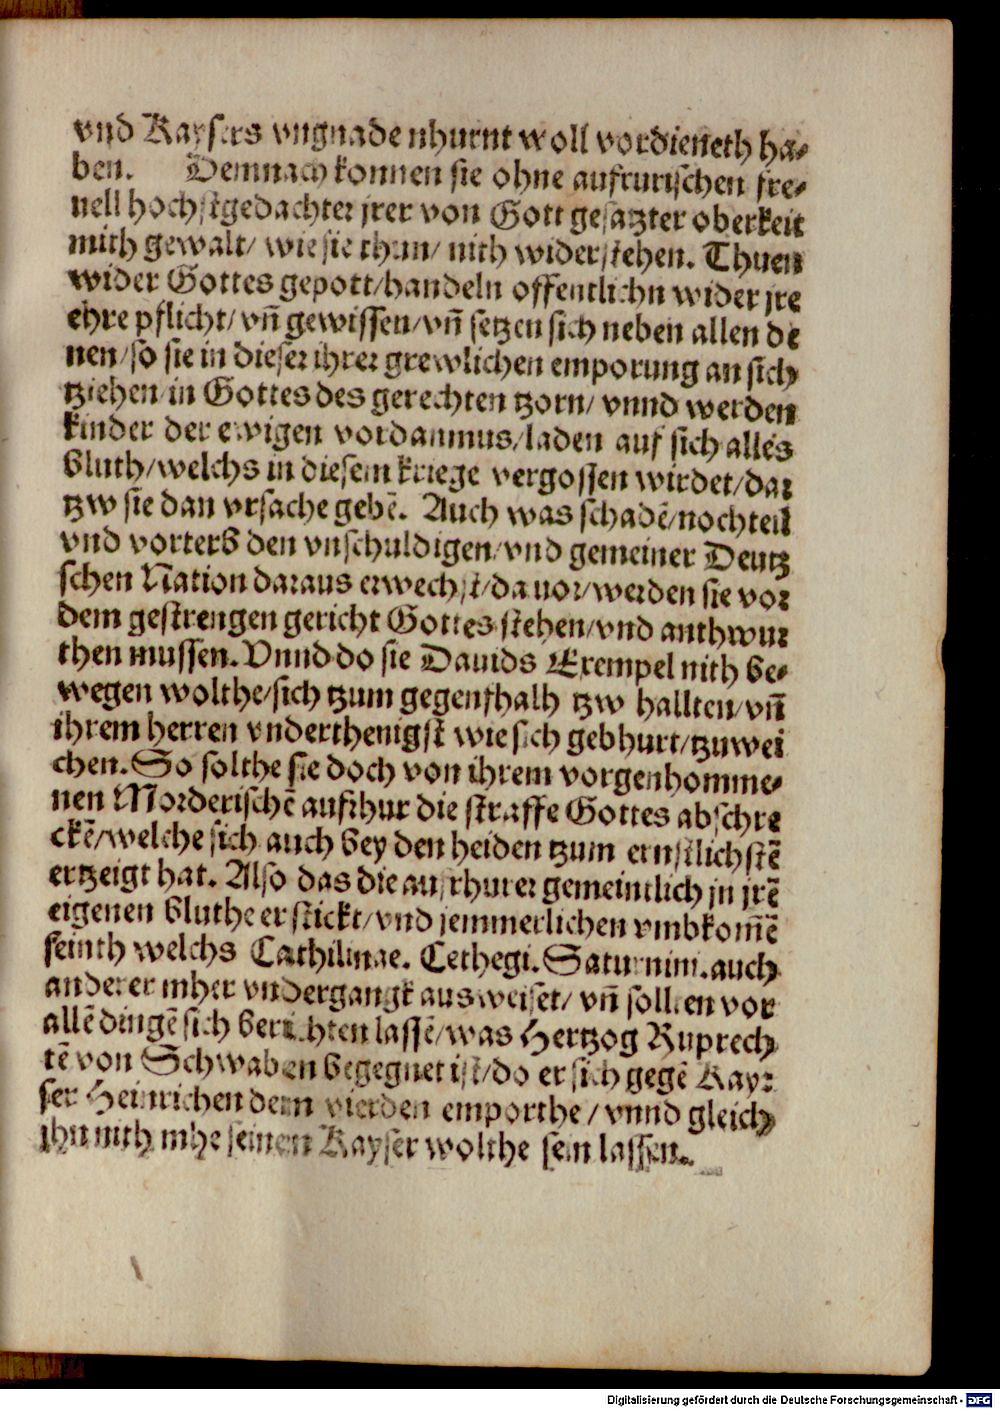 vnd Kaysers vngnade nhurnt woll vordieneth ha⸗
ben. Demnach konnen sie ohne aufrurischen fre⸗
nell hochstgedachter jrer von Gott gesatzter oberkeit
mith gewalt/ wie sie thun/ nith widerstehen. Thuen
wider Gottes gepott/handeln offentlichn wider jre
ehre pflicht/ vñ gewissen/vñ setzen sich neben allen de
nen/so sie in dieser ihrer grewlichen emporung an sich
tziehen/in Gottes des gerechten tzorn/ vnnd werden
kinder der ewigen vordanmus/laden auf sich alles
bluth/welchs in diesem kriege vergossen wirdet/dar
tzw sie dan vrsache gebē. Auch was schadē/nochteil
vnd vorterb den vnschuldigen/vnd gemeiner Deutz
schen Nation daraus erwechst/dauor/werden sie vor
dem gestrengen gericht Gottes stehen/vnd anthwur
then mussen. Vnnd do sie Dauids Exempel nith be⸗
wegen wolthe/sich tzum gegenfhalh tzw hallten/vñ
ihrem herren vnderthenigst wie sich gebhurt/tzuwei
chen. So solthe sie doch von ihrem vorgenhomme⸗
nen Morderischē aufrhur die straffe Gottes abschre
ckē/welche sich auch bey den heiden tzum ernstlichstē
ertzeigt hat. Also das die aufrhurer gemeintlich jn jrē
eigenen bluthe erstickt/vnd jemmerlichen vmbkom̄ē
seinth welchs Cathilinae. Cethegi. Saturnini. auch
anderer mher vndergangk ausweiset/ vñ sollten vor
allē dingē sich berichten lassē/was Hertzog Ruprech
tē von Schwaben begegnet ist/do er sich gegē Kay⸗
ser Heinrichen dem vierden emporthe/ vnnd gleich
ihn nith mhe seinen Kayser wolthe sein lassen.
Digitalisierung gefördert durch die Deutsche Forschungsgemeinschaft - DFG